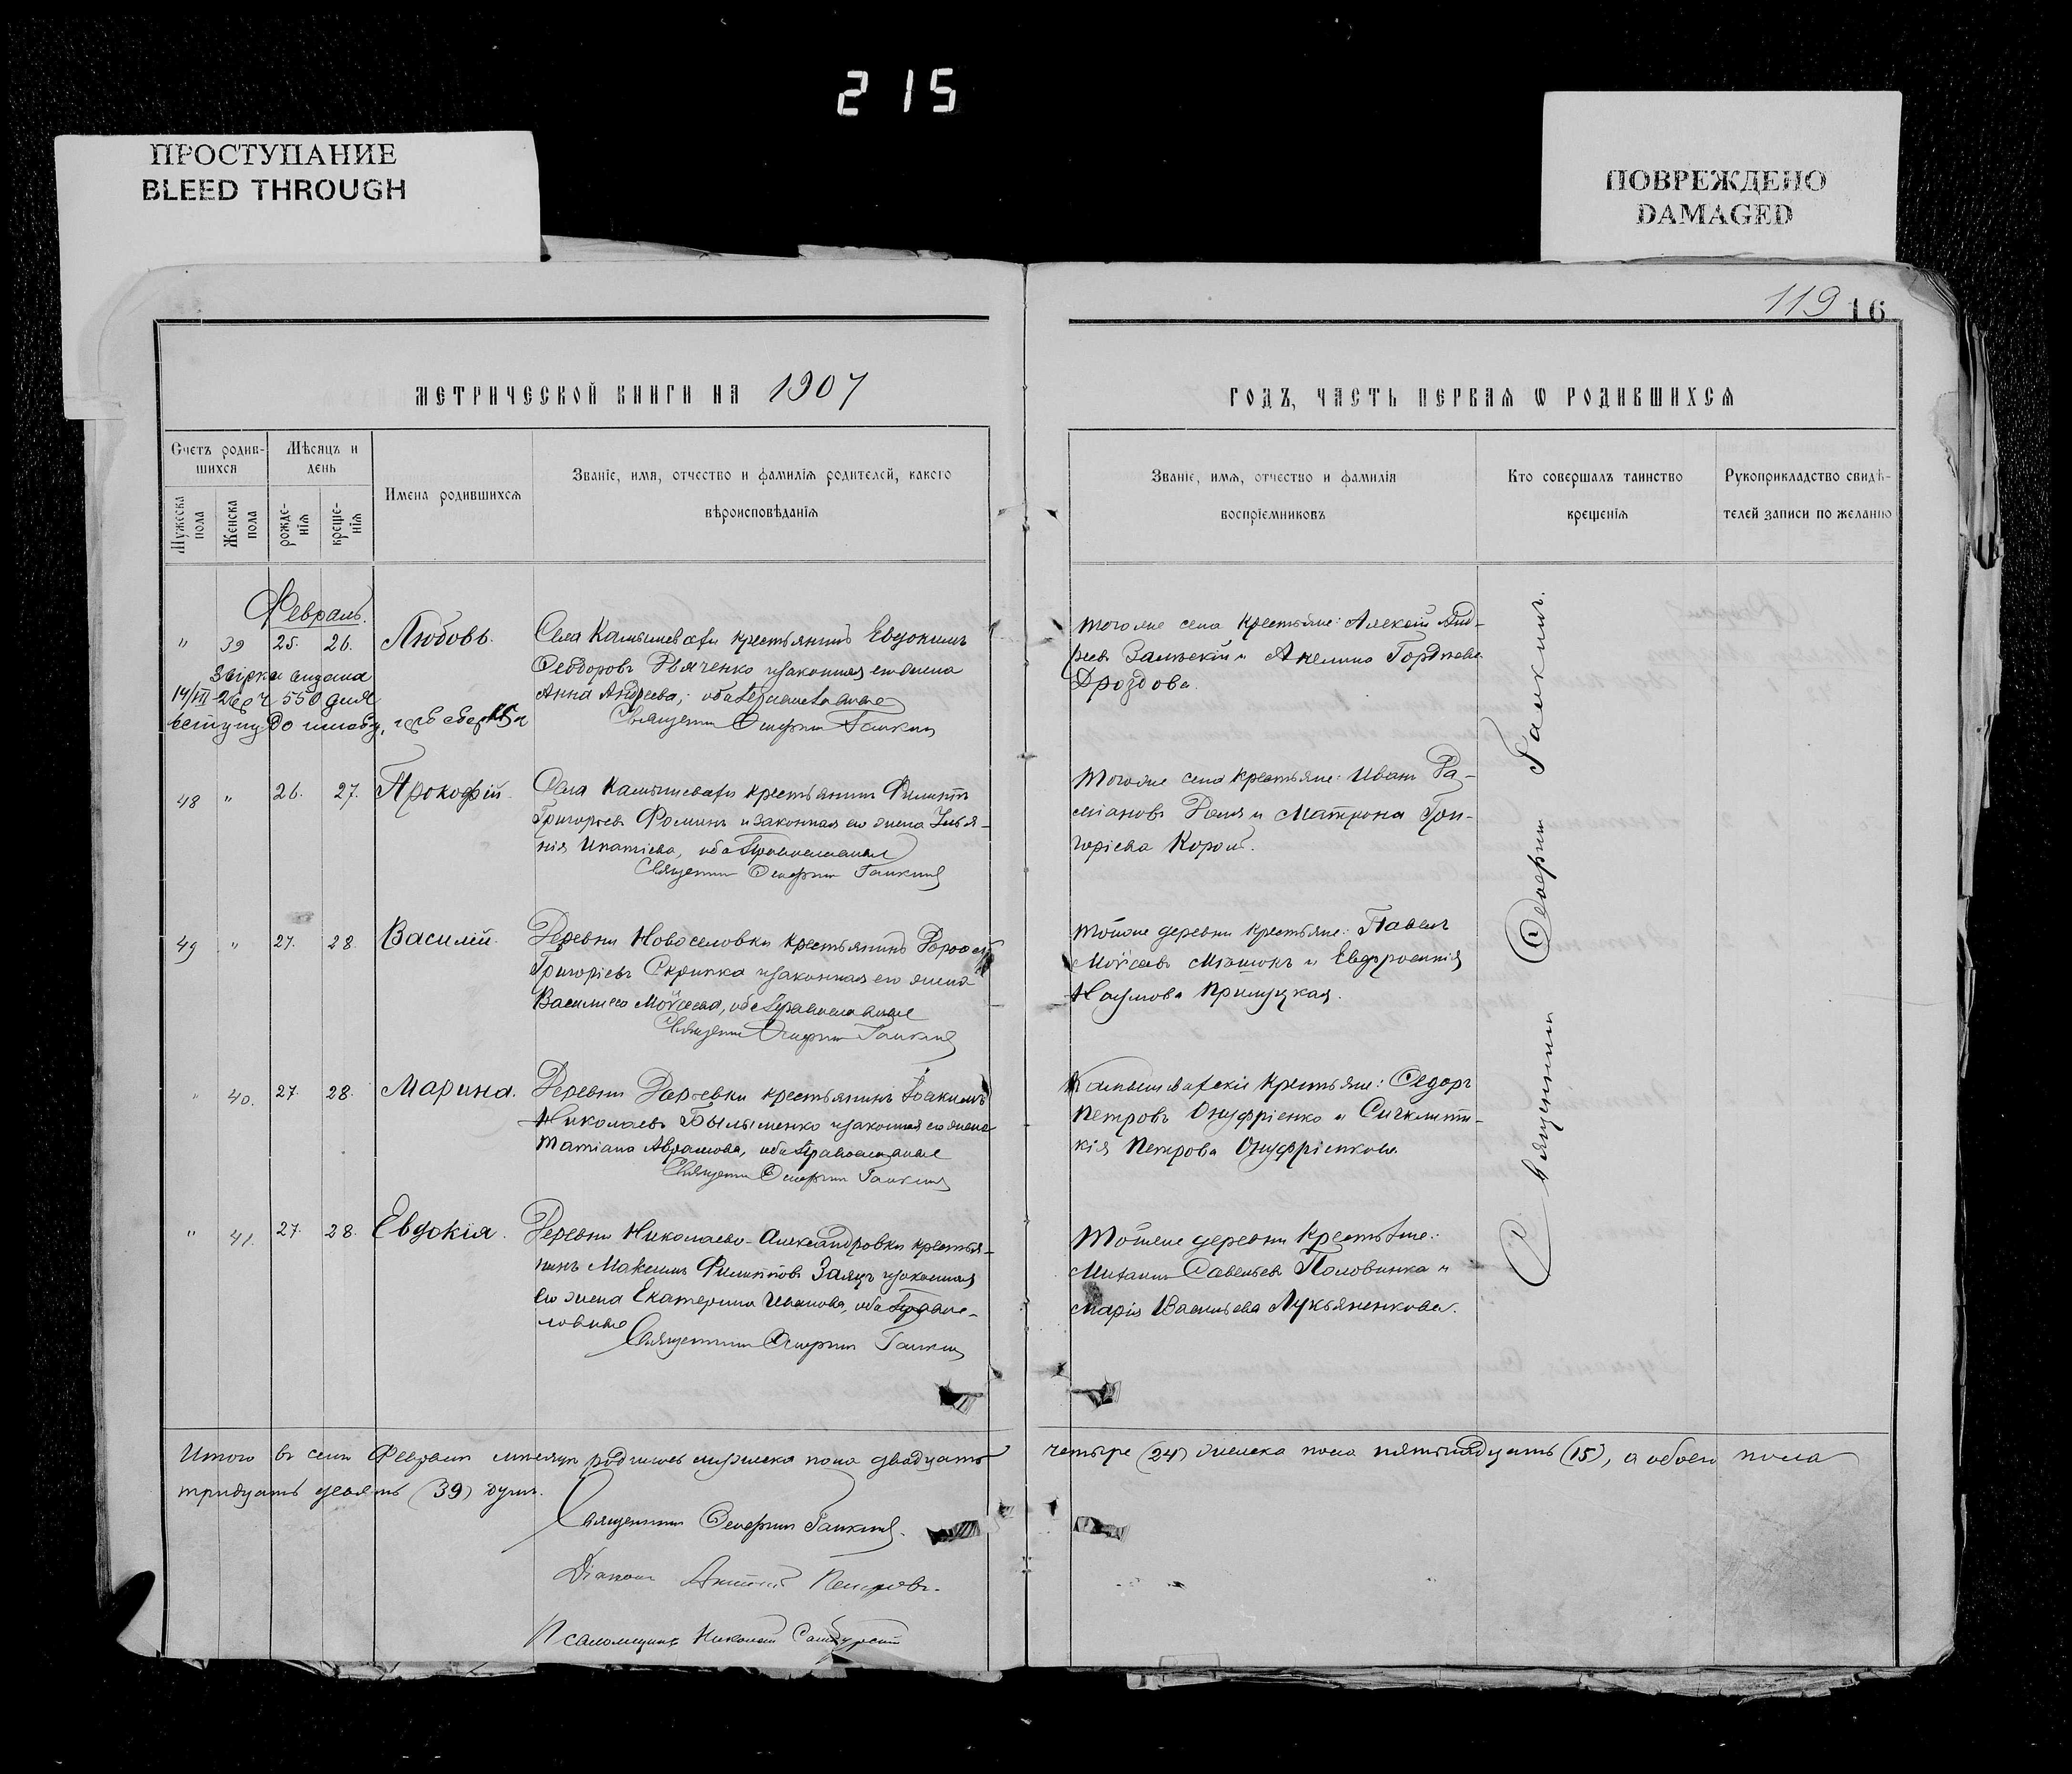 215
ПРОСТУПАНИЕ
BLEED THROUGH
ПОВРЕЖДЕНО
DAMAGED
119 16
МЕТРИЧЕСКОЙ КНИГИ НА 1907
ГОДЪ, ЧАСТЬ ПЕРВАЯ Ѡ РОДИВШИХСЯ
Счетъ родив-
шихся
Мужеска пола
Женска пола
Мѣсяцъ и
день
рожде-
нія
креще-
нія
Имена родившихся
Званіе, имя, отчество и фамилія родителей, какого
вѣроисповѣданія
Званіе, имя, отчество и фамилія
воспріемниковъ
Кто совершалъ таинство
крещенія
Рукоприкладство свидѣ-
телей записи по желанію
Февраль.
" 39 25. 26. Любовь.
Села Камышевати крестьянинъ Евдокимъ
Феодоровъ Дяченко и законная его жена
Анна Андреева, оба православные
Священникъ Галкинъ
Звірка видана
14/VII 550 для
вступу до шлюбу,
тогоже села крестьяне: Алексѣй Анд-
реевъ и Акелина Гордѣева
Дроздова.
48 " 26. 27. Прокофій.
Села Камышевати крестьянинъ Филиппъ
Григорьевъ Фоминъ и законная его жена Улья-
нія Ипатіева, оба православные
Священникъ Галкинъ
тогоже села крестьяне: Иванъ Да-
міановъ и Матрона Гри-
горіева
49 " 27. 28. Василій.
Деревни Новоселовки крестьянинъ
Григоріевъ Скрипка и законная его жена
Василиса Мойсеева, оба православные
Священникъ Галкинъ
тойже деревни крестьяне: Павелъ
Мойсеевъ и Евфросинія
Наумова Прилуцкая.
" 40. 27. 28. Марина.
Деревни крестьянинъ Іоакимъ
Николаевъ и законная его жена
Татіана Авраамова, оба православные
Священникъ Галкинъ
Камышеватскіе крестьяне: Федоръ
Петровъ Онуфріенко и Синклити-
кія Петрова Онуфріенкова.
" 41. 27. 28. Евдокія.
Деревни Николаево-Александровки крестья-
нинъ Максимъ Филипповъ Заяцъ и законная
его жена Екатерина Иванова, оба право-
славные
Священникъ Галкинъ
тойже деревни крестьяне:
Михаилъ Савельевъ Половинка и
Марія Васильева Лукьяненкова.
Священникъ Галкинъ.
Итого въ семъ Февралѣ мѣсяцѣ родилось мужеска пола двадцать четыре (24) женска пола пятнадцать (15), а обоего пола
тридцать девять (39) душъ.
Священникъ Галкинъ.
Діаконъ Петровъ.
Псаломщикъ Николай